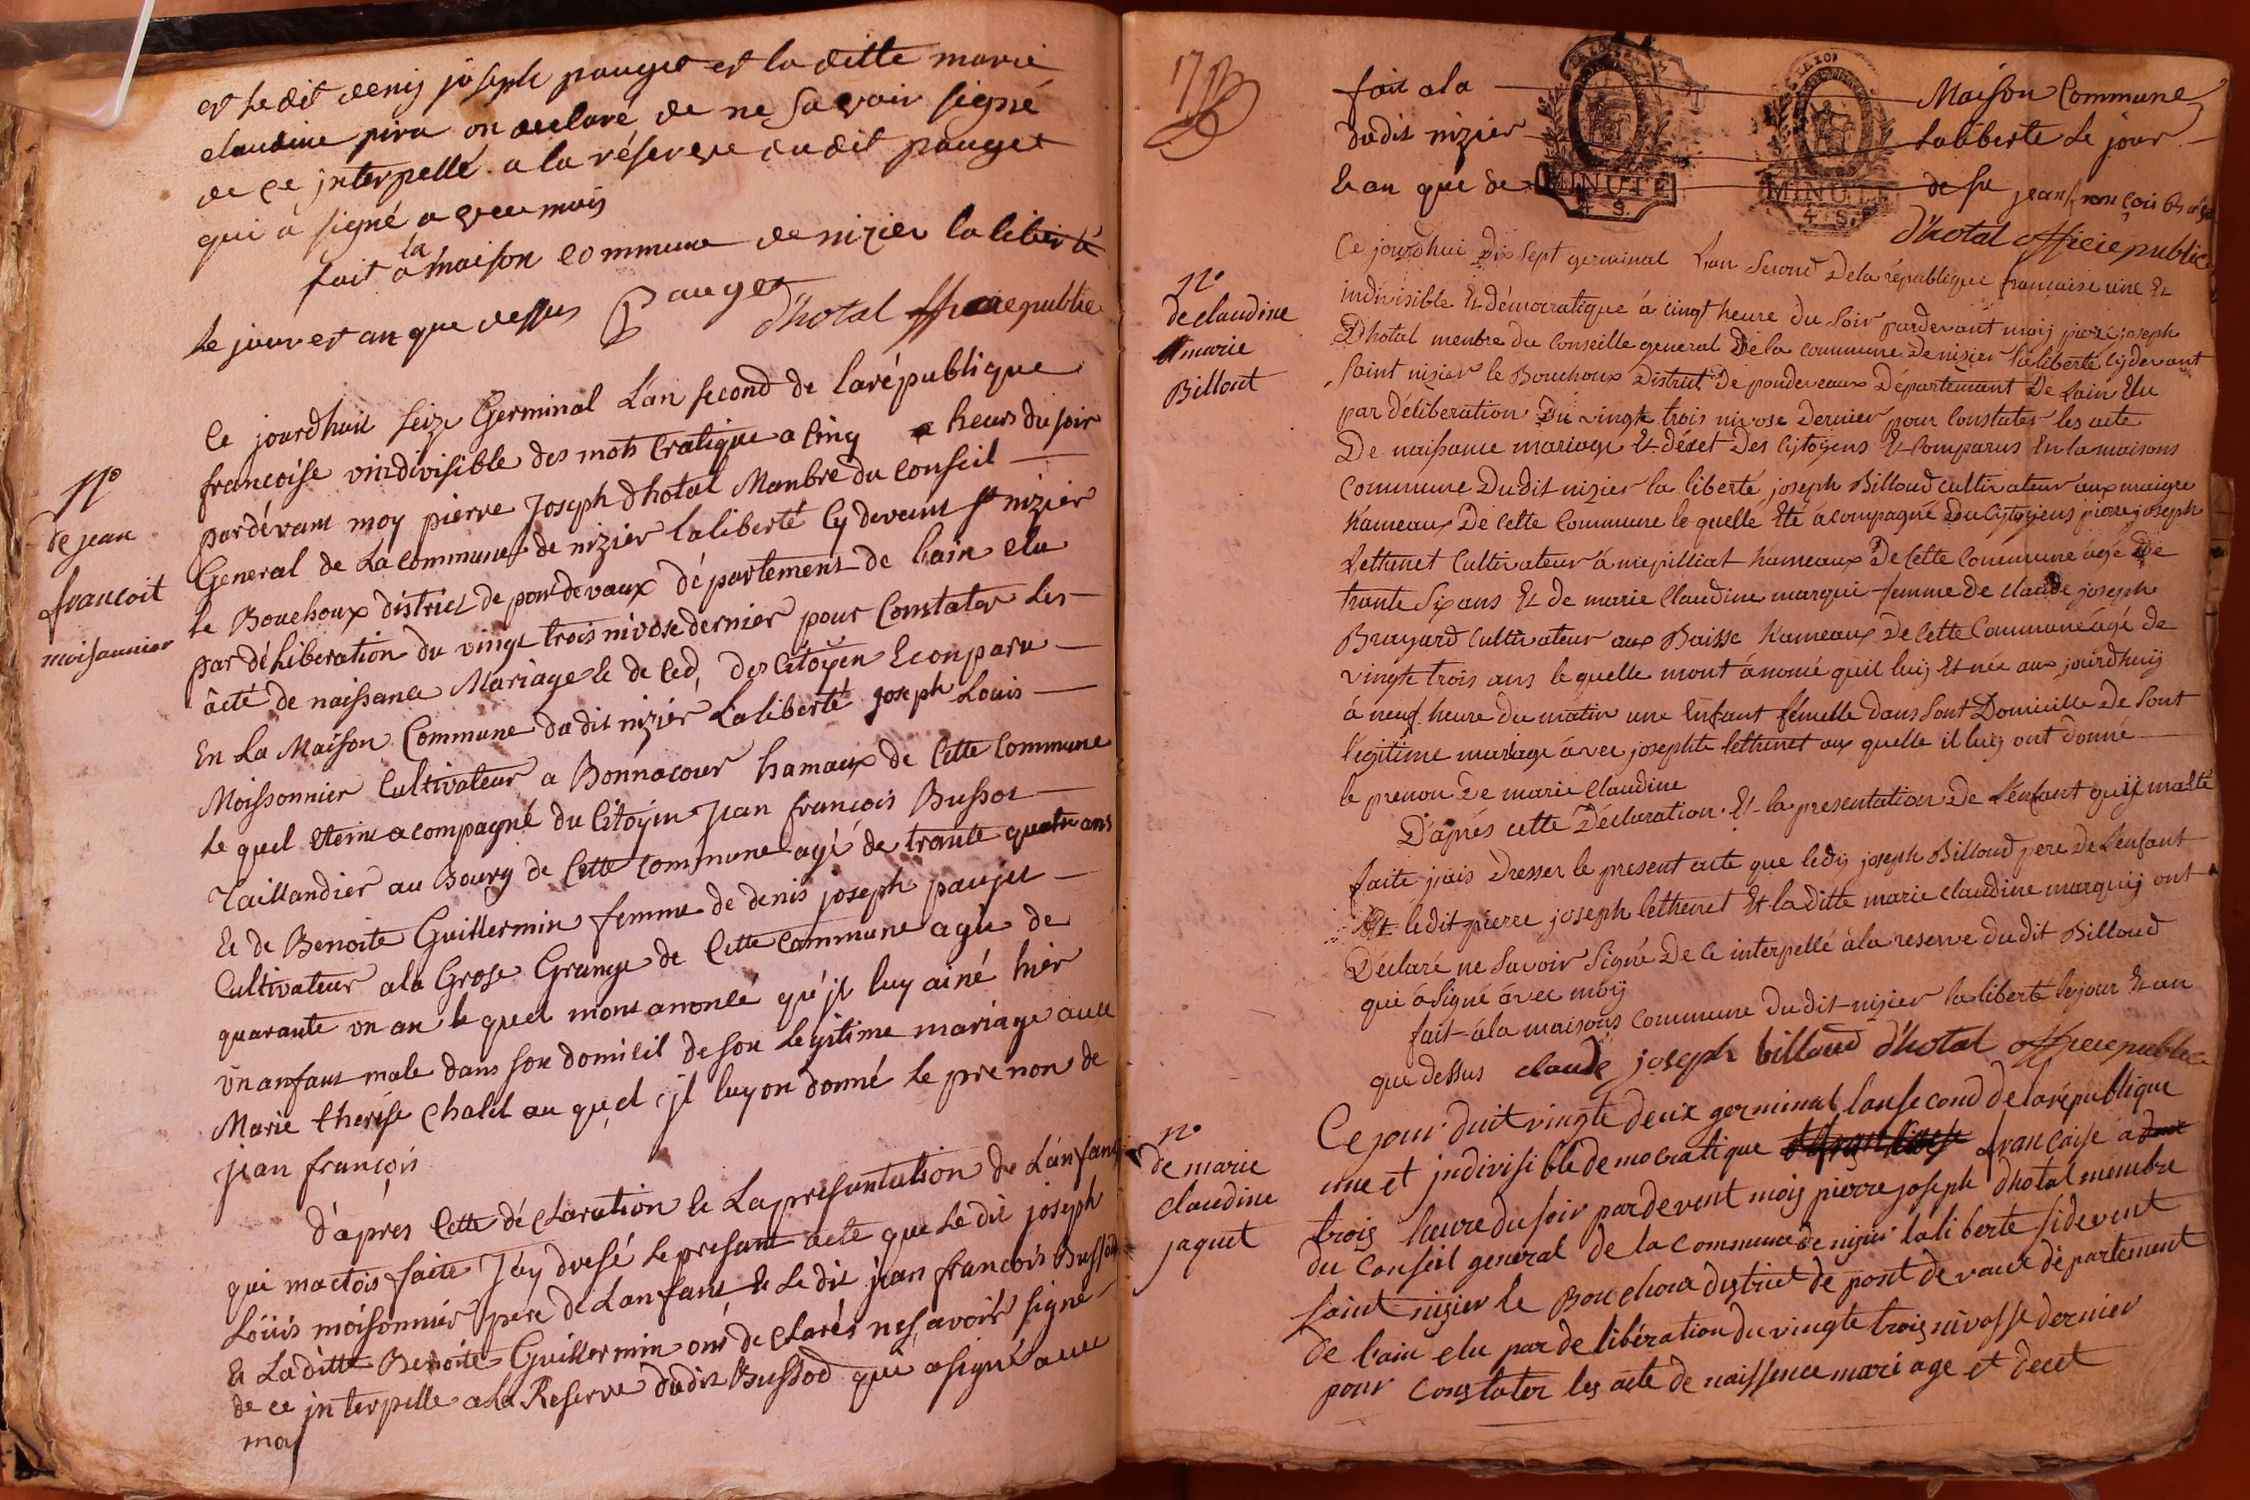 et ledit denis joseph pauget et la ditte marie
claudine pira on declaré de ne savoir signé
de ce interpellé a la réserve dudit pauget
qui a signé avec mois
fait a la maison commune de nizier la liberté
le jour et an que dessus Pauget
d'hotal officie public
Ce jourdhuit seize Germinal L'an second de larépublique
francoise vindivisible des mots Cratique a Cinq heurs du soir
pardévant moy pierre Joseph dhotal Manbre du Conseil
General de La commune de nizier laliberté Cy devant st nizier
le Bouchoux district de pondevaux département de lain elu
par déliberation du vingt trois nivose dernier pour Constater Les
acté de naissance Mariage le de Ced, des Citoÿen Econparu
En La Maison Commune dudit nizier Laliberté Joseph Louis
Moissonnier Cultivateur a Bonnacour hamaux de Cette Commune
Le quel acompagné du Citoÿin Jean françois Bussod
Taillandier au Bourg de Cette Commune agé de trante quatre ans
Et de Benoite Guillermin femme de denis joseph paujet
Cultivateur ala Grose Grange de Cette Commune agée de
quarante un an le quel mont anoncé qu'jl luy ainé hier
un anfant male dans son domicil de son Legitime mariage avec
Marie therése Chalel au quel jl luyon donné le prenon de
jean françois
d'après Cette déclaration Et La presentation de L'anfant
qui mactois faite J'ay dresé le present acte que Le dit joseph
Loüis moisonnier pere de Lanfant Et Le dit jean francois Bussod
Et Laditte Benoite Guillermin ont declarés ne savoir signé
de ce interpelle ala Reserve dudit Bussod que a signé avec
moy
N°
de jean
francoit
moisaunier
fait a la Maison Commune
dudit nizier Laliberte Le jour
Et an que de su jean françois
MINUTE
4. S.
MINUTE
4. S.
d'hotal officie public
Ce jourdhui dix sept germinal Lan Second De la république francaise une Et
indivisible Et démocratique à cingt heure du Soir pardevant moij pierre joseph
Dhotal menbre du Conseille general De la commune De nisier la liberté cijdevant
Saint nisier le Bouchoux District De pondeveaux Département De Lain Elu
par déliberation Du vingt trois nivose Dernier pour Constater les acte
De naissance mariage Et décet Des Cytoyens Et Comparus En la maisons
Commune Dudit nizier la liberté joseph Billoud cultivateur aux maigre
hameaux De Cette Commune le quelle Eté acompagné Du Cytoyens pierre joseph
Lethenet Cultivateur à mepilliat hameaux De Cette Commune âgé De
trante Six ans Et de marie Claudine marqui femme de claude joseph
Brayard Cultivateur aux Baisse hameaux De Cette Commune âgé de
vingt trois ans le quelle mont ànoncé quil luij Et née aux jourdhuij
à neuf heure du matin une Enfant fémelle dans Sont Domicille De Sont
légitime mariage àvec josephte lethenet aux quelle il luij ont donné
le prenon De marie Claudine
D'aprés cette Déclaration Et la presentation De L'enfant quij malté
faite jais Dresser le present acte que ledij joseph Billoud pere De L'enfant
Et ledit pierre joseph lethenet Et la ditte marie Claudine marquij ont
Déclaré ne Savoir Signé De Ce interpellé àla reserve dudit Billoud
qui à Signé àvec moij
fait àla maisons Commune dudit nisier la liberté le jour Et an
que dessus claude joseph billoud d'hotal officie public
Ce jour duit vingte deux germinal lan second de la république
une et jndivisible democratique française a
trois heure du soir pardevent mois pierre joseph dhotal membre
du Conseil general de la commune de nizier la liberte sidevent
saint nizier le Bouchoux district de pont de vaux département
de l'ain elu par delibération du vingte trois nivosse dernier
pour Constater les acte de naissence mariage et decet
N°
de claudine
marie
Billout
n°
de marie
claudine
jaquet